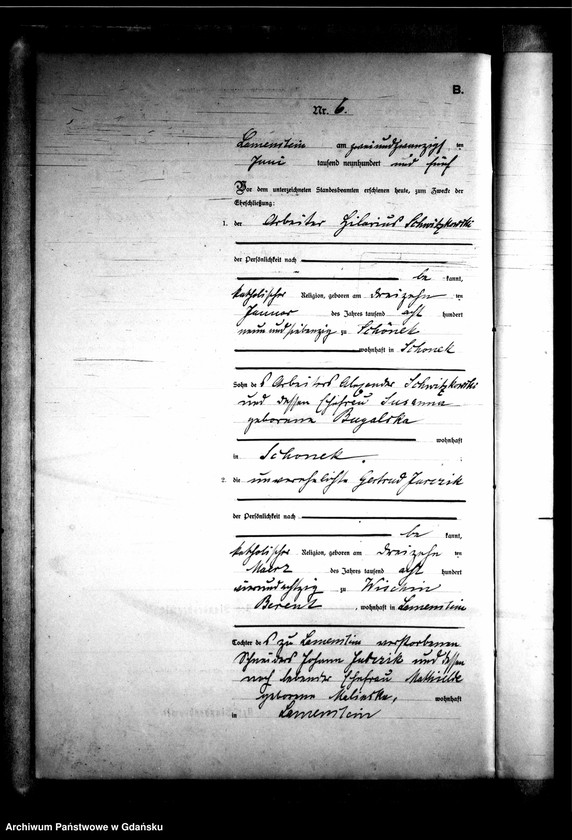 B.
Nr. 6.
Lamenstein am zweiundzwanzigs ten
Juni tausend neunhundert und fünf
Vor dem unterzeichneten Standesbeamten erschienen heute, zum Zwecke der
Eheschließung:
1. der Arbeiter Hilarius Schwitzkowski
der Persönlichkeit nach
be kannt,
katholischer Religion, geboren am dreizehn ten
Januar des Jahres tausend acht hundert
neunundsiebenzig zu Schöneck
wohnhaft in Schoneck
Sohn des Arbeiters Schwitzkowski
und dessen Ehefrau Susanna
geborene Bugalska
wohnhaft
in Schoneck.
2. die unverehelichte Gertrud Jurczik
der Persönlichkeit nach
be kannt,
katholischer Religion, geboren am dreizehn ten
Maerz des Jahres tausend acht hundert
vierundachtzig zu Wischin
Berent, wohnhaft in Lamenstein
Tochter des zu Lamenstein verstorbenen
Schneiders Johann Jurczik und dessen
noch lebender Ehefrau Mathilde
geborene wohnhaft
in Lamenstein
Archiwum Państwowe w Gdańsku